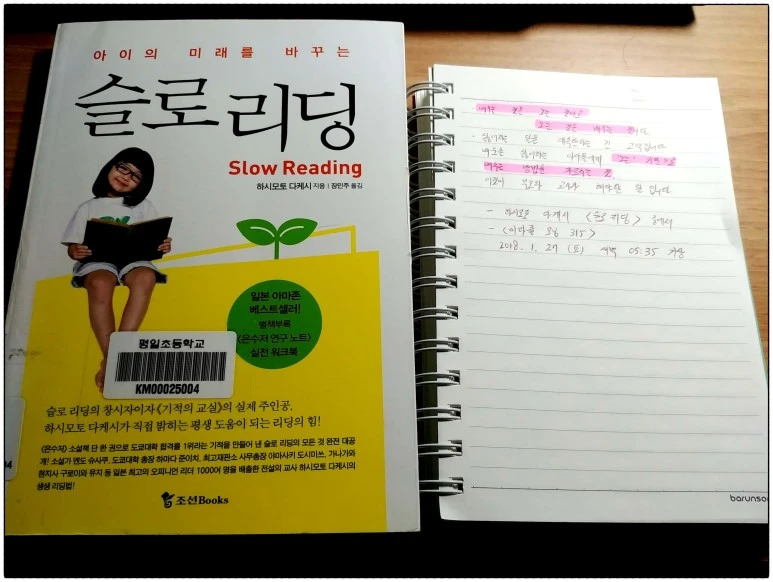 아이의 미래를 바꾸는
슬로 리딩
Slow Reading
하시모토 다케시 지음 / 장민주 옮김
일본 아마존
베스트셀러!
별책부록
〈은수저 연구 노트〉
실전 워크북
평일초등학교
KM00025004
슬로 리딩의 창시자이자 《기적의 교실》의 실제 주인공,
하시모토 다케시가 직접 밝히는 평생 도움이 되는 리딩의 힘!
《은수저》 소설책 단 한 권으로 도쿄대학 합격률 1위라는 기적을 만들어 낸 슬로 리딩의 모든 것 완전 대공
개! 소설가 엔도 슈사쿠, 도쿄대학 총장 하마다 준이치, 최고재판소 사무총장 야마사키 도시미쓰, 가나가와
현지사 구로이와 유지 등 일본 최고의 오피니언 리더 1000여 명을 배출한 전설의 교사 하시모토 다케시의
생생 리딩법!
조선Books
04
노는 것은 배우는 것이다
- 하시모토 다케시 <슬로 리딩> 중에서
2018. 1. 27 (토) 새벽 05:35
barunso